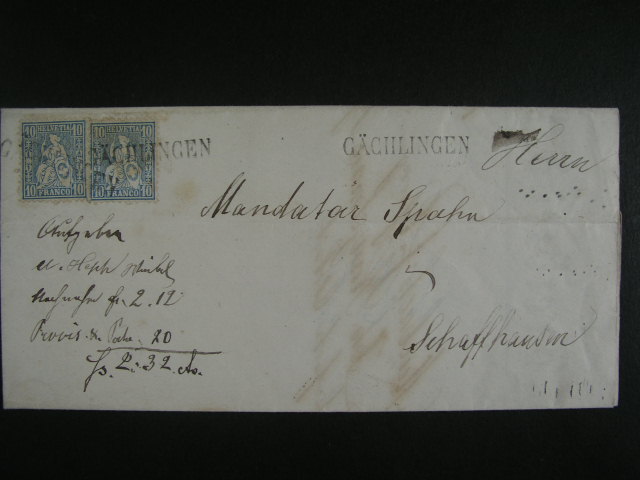 10 HELVETIA 10
10 FRANCO 10
10 HELVETIA 10
10 FRANCO 10
GÄCHLINGEN
GÄCHLINGEN
Herrn
Mandatar Spahn
Schaffhausen
Aufgeber
Nachnahme fr. 2.12
Provis. & Porto. 20
fr. 2.32 cts.